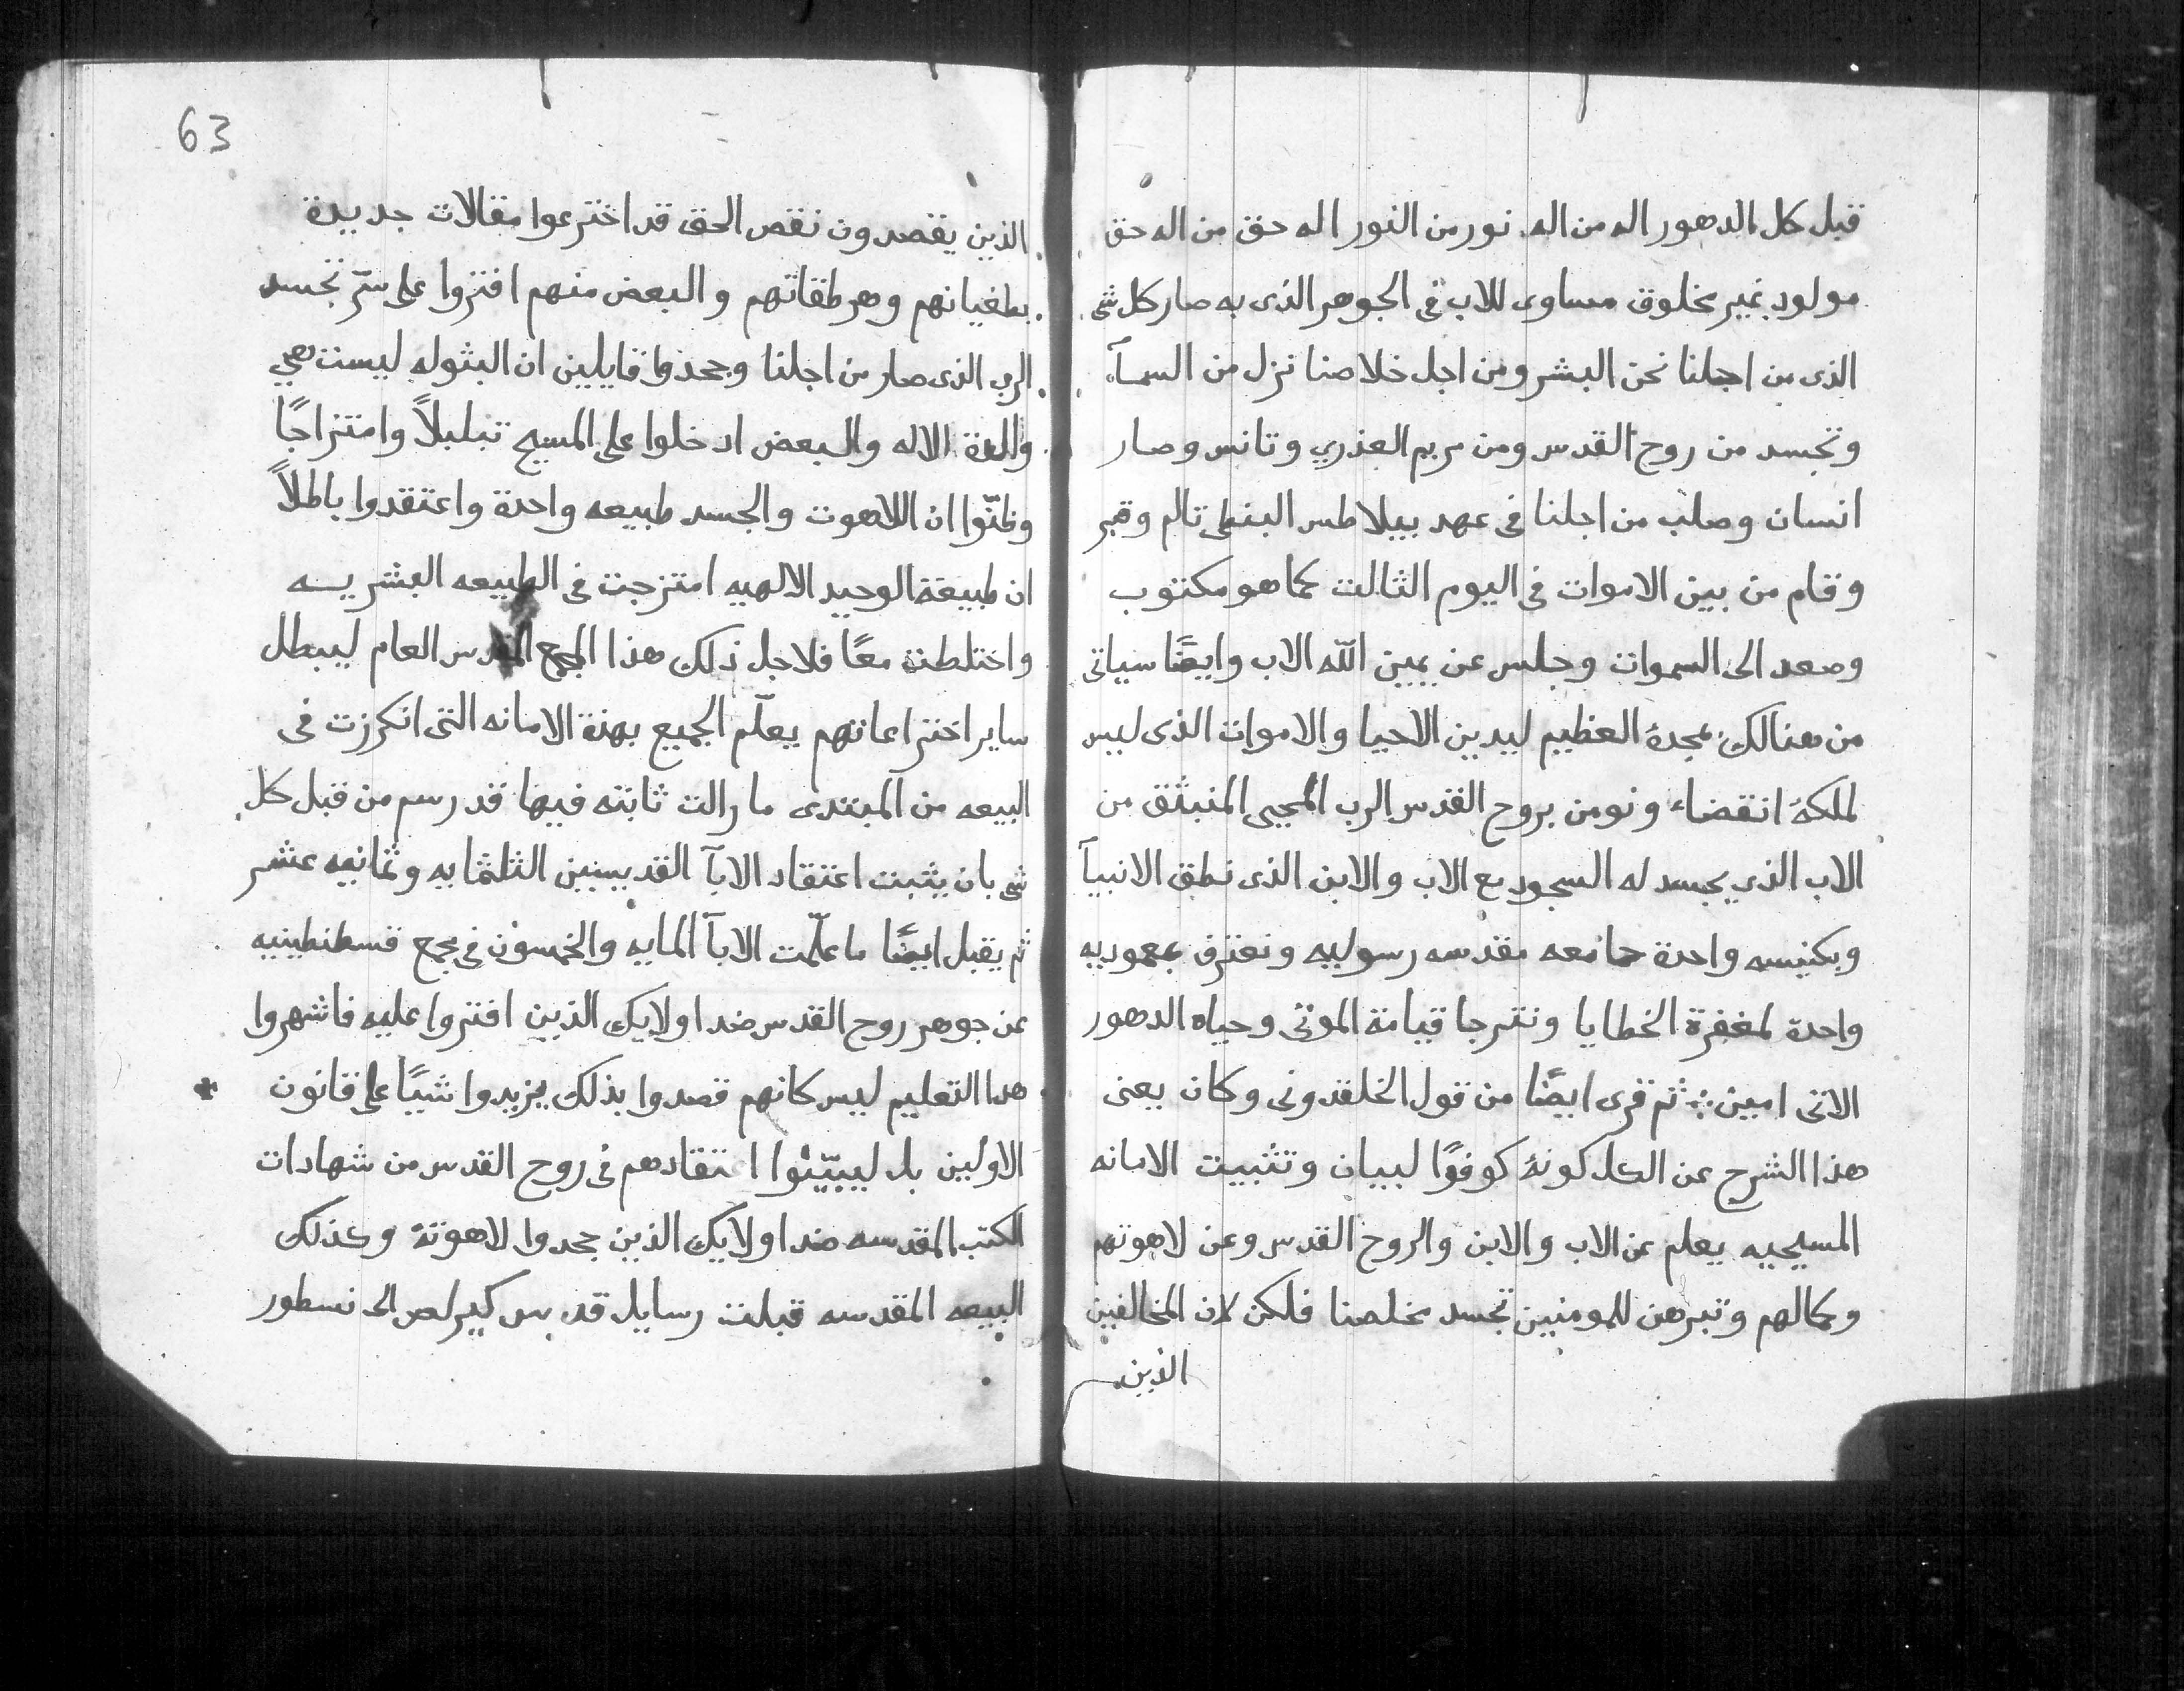 قبل كل الدهور اله من اله نور من النور اله حق من اله حق
مولود غير مخلوق مساوى للاب فى الجوهر الذى به صار كل شى
الذى من اجلنا نحن البشر ومن اجل خلاصنا نزل من السمآء
وتجسد من روح القدس ومن مريم العذري وتانس وصار
انسان وصلب من اجلنا فى عهد بيلاطس البنطى تالم وقبر
وقام من بين الاموات فى اليوم الثالت كما هو مكتوب
وصعد الى السموات وجلس عن يمين اللّه الاب وايضًا سياتى
من هنالك بمجدهُ العظيم ليدين الاحيا والاموات الذى ليس
لملكهُ انقضاء ونومن بروح القدس الرب المحيى المنبثق من
الاب الذي يجسد له السجود مع الاب والابن الذى نطق الانبيآ
وبكنيسه واحدة جامعه مقدسه رسوليه ونعترف بمعموديه
واحدة لمغفرة الخطايا ونترجا قيامة الموتى وحياه الدهور
الاتى امين ثم قرى ايضًا من قول الخلقدونى وكان يعنى
هذا الشرح عن الكل كونهُ كوفوًا لبيان وتثبيت الامانه
المسيحيه يعلم عن الاب والابن والروح القدس وعن لاهوتهم
وكمالهم وتبرهن للمومنين تجسد مخلصنا فلكن لان المخالفين
الذين
63
الذين يقصدون نقص الحق قد اخترعوا مقالات جديدة
بطغيانهم وهرطقاتهم والبعض منهم افتروا على سرّ تجسد
الرب الذى صار من اجلنا وجحدوا قايلين ان البثوله ليست هي
والدة الاله والبعض ادخلوا على المسيح تبلبلاً وامتزاجًا
وظنّوا ان اللاهوت والجسد طبيعه واحدة واعتقدوا باطلاً
ان طبيعة الوحيد الالهيه امتزجت فى الطبيعه البشريه
واختلطت معًا فلاجل ذلك هذا المجمع المقدس العام ليبطل
ساير اختراعاتهم يعلّم الجميع بهذة الامانه التى انكرزت فى
البيعه من المبتدى مارالت ثابته فيها قد رسم من قبل كل
شى بان يثبت اعتقاد الابآ القديسين الثلثمايه وثمانيه عشر
ثم يقبل ايضًا ما علّمت الابآ المايه والخمسون فى مجمع قسطنطينيه
عن جوهر روح القدس ضد اولايك الذين افتروا عليه فاشهروا
هدا التعليم ليس كانهم قصدوا بذلك يزيدوا شيًا على قانون
الاولين بل ليبيّنوا اعتقادهم فى روح القدس من شهادات
الكتب المقدسه ضد اولايك الذين جحدوا لاهوتهُ وكذلك
البيعه المقدسه قبلت رسايل قديس كيرلص الى نسطور